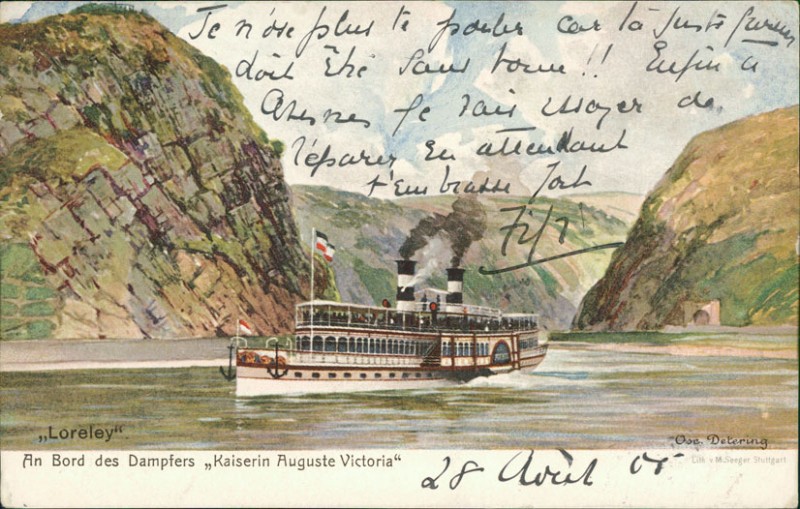 Je n'ose plus te parler car ta juste fureur
doit être sans borne !! Enfin à
Avesnes je vais essayer de
réparer en attendant
t'embrasse fort
Fifi
„Loreley“.
Osc. Detering
An Bord des Dampfers „Kaiserin Auguste Victoria“
Lith. v. M. Seeger Stuttgart
28 Août 05